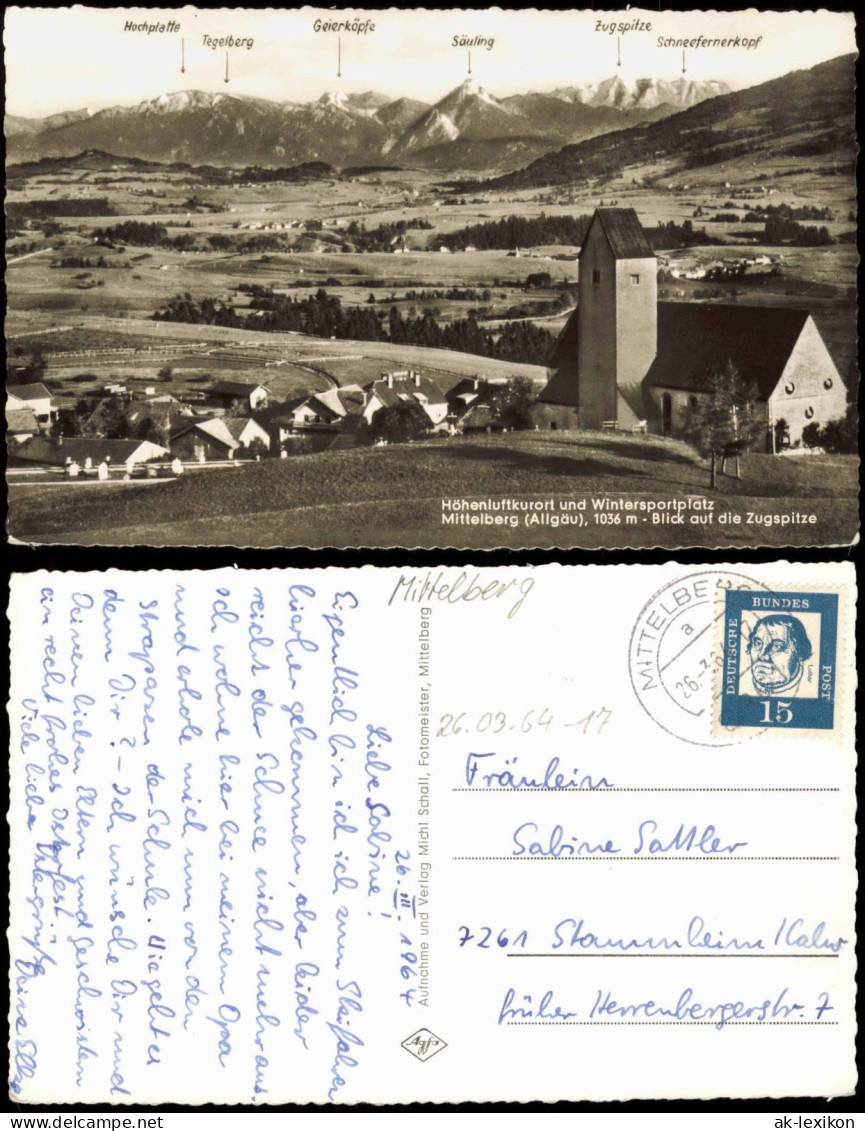 Hochplatte
Tegelberg
Geierköpfe
Säuling
Zugspitze
Schneefernerkopf
Höhenluftkurort und Wintersportplatz
Mittelberg (Allgäu), 1036 m - Blick auf die Zugspitze
Mittelberg
26.03.64-17
26. III. 1964
Liebe Sabine!
Eigentlich bin ich ich zum Skifahren
hierher gekommen, aber leider
reicht der Schnee nicht mehr aus.
Ich wohne hier bei meinem Opa
und erhole mich nun von den
Strapazen der Schule. Wie geht es
denn Dir? - Ich wünsche Dir und
Deinen lieben Eltern und Geschwistern
ein recht frohes Osterfest.
Viele liebe Ostergrüße Deine
Aufnahme und Verlag Michl Schall, Fotomeister, Mittelberg
Agfa
MITTELBERG
a
26.-3.64
DEUTSCHE
BUNDES
POST
Luther
15
Fräulein
Sabine Sattler
7261 Stammheim/Calw
früher Herrenbergerstr. 7
ak-lexikon